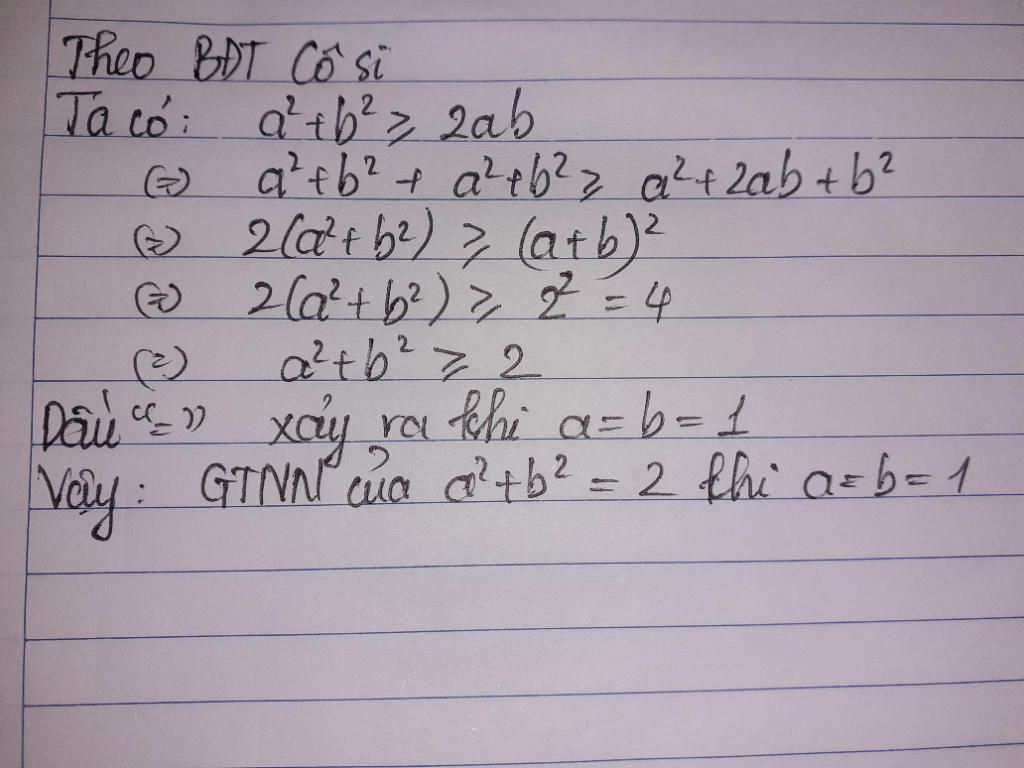 Theo BĐT Cô si
Ta có: a² + b² ≥ 2ab
(=) a² + b² + a² + b² ≥ a² + 2ab + b²
(=) 2(a² + b²) ≥ (a + b)²
(=) 2(a² + b²) ≥ 2² = 4
(=) a² + b² ≥ 2
Dấu "=" xảy ra khi a = b = 1
Vậy: GTNN của a² + b² = 2 khi a = b = 1